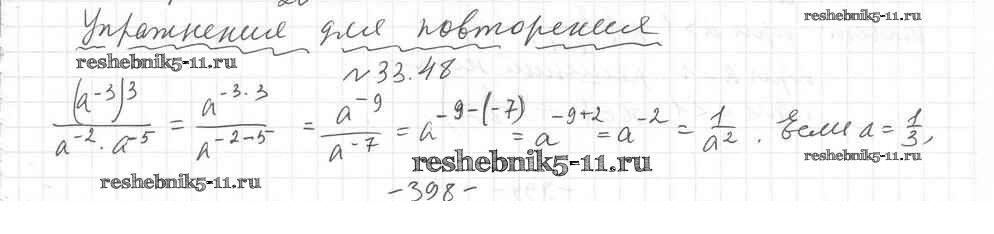 Упражнения для повторения
reshebnik5-11.ru
reshebnik5-11.ru
№33.48
(a⁻³)³/(a⁻²·a⁻⁵) = a⁻³·³/a⁻²⁻⁵ = a⁻⁹/a⁻⁷ = a⁻⁹⁻⁽⁻⁷⁾ = a⁻⁹⁺² = a⁻² = 1/a². Если a = 1/3,
reshebnik5-11.ru
reshebnik5-11.ru
reshebnik5-11.ru
-398-